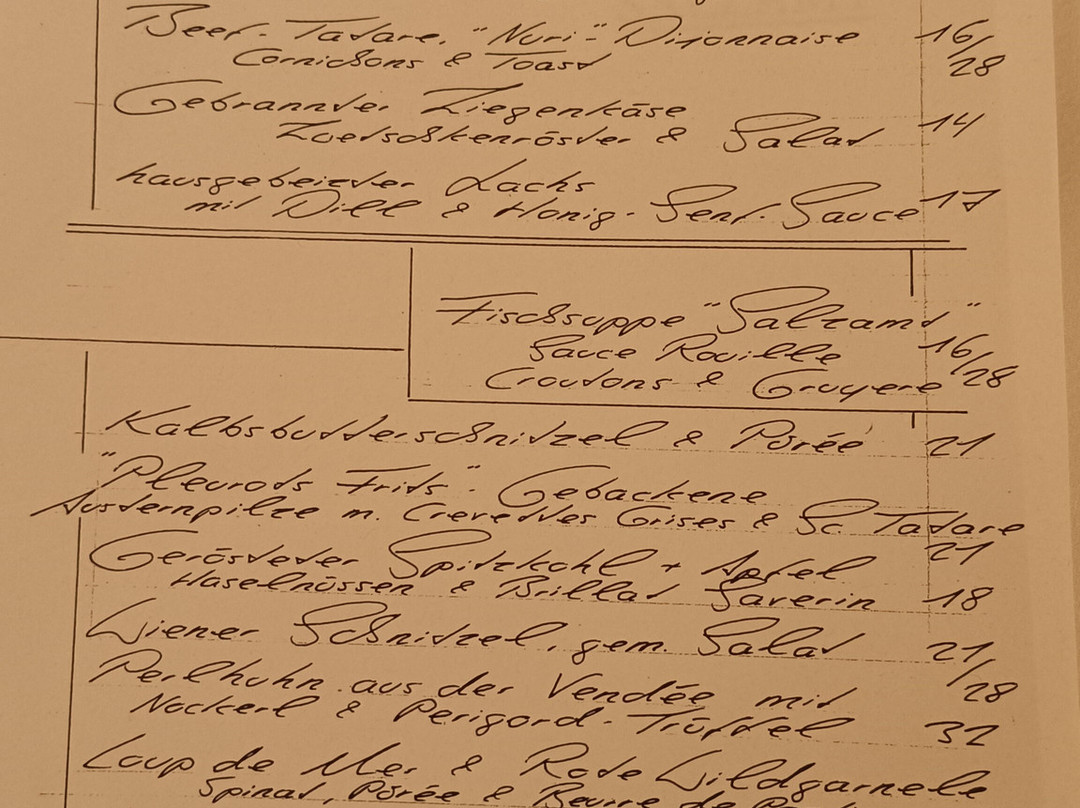 Beef-Tatare, "Nuri"- Dijonnaise 16/28
Cornichons & Toast
Gebrannter Ziegenkäse
Zwetschkenröster & Salat 14
hausgebeizter Lachs
mit Dill & Honig-Senf-Sauce 17
Fischsuppe "Salzamt"
Sauce Rouille 16/28
Croutons & Gruyere
Kalbsbutterschnitzel & Pürée 21
"Pleurots Frits" - Gebackene
Austernpilze m. Crevettes Grises & Sc. Tatare
21
Gerösteter Spitzkohl + Apfel
Haselnüssen & Brillat Saverin 18
Wiener Schnitzel, gem. Salat 21/28
Perlhuhn aus der Vendée mit
Nockerl & Perigord-Trüffel 32
Loup de Mer & Rote Wildgarnele
Spinat, Pürée & Beurre de